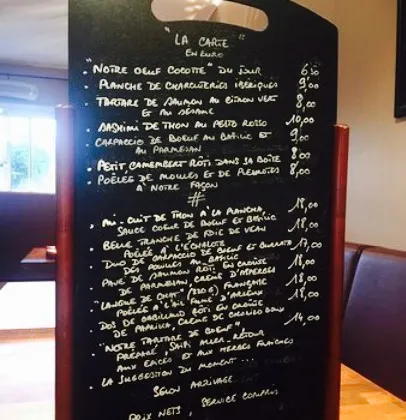 "LA CARTE"
EN EURO
. "NOTRE OEUF COCOTTE" DU JOUR 6,50
. PLANCHE DE CHARCUTERIES IBÉRIQUES 9,00
. TARTARE DE SAUMON AU CITRON VERT 8,00
ET AU SÉSAME
. SASHIMI DE THON AU PESTO ROSSO 10,00
. CARPACCIO DE BOEUF AU BASILIC ET 9,00
AU PARMESAN
. PETIT CAMEMBERT RÔTI DANS SA BOÎTE 8,00
. POÊLÉE DE MOULES ET DE PLEUROTES 8,00
À NOTRE FAÇON
#
. MI-CUIT DE THON À LA PLANCHA, 18,00
SAUCE COEUR DE BOEUF ET BASILIC
. BELLE TRANCHE DE FOIE DE VEAU 18,00
POÊLÉE À L'ÉCHALOTE
. DUO DE CARPACCIO DE BOEUF ET BURRATA 17,00
DES POUILLES AU BASILIC
. PAVÉ DE SAUMON RÔTI EN CROÛTE 18,00
DE PARMESAN, CRÈME D'ASPERGES
. "LANGUE DE CHAT" FRANÇAISE 18,00
POÊLÉE À L'AIL FUMÉ D'ARLEUX
. DOS DE CABILLAUD RÔTI EN CROÛTE 18,00
DE PAPRIKA, CRÈME DE CHORIZO DOUX
. "NOTRE TARTARE DE BOEUF", 14,00
PRÉPARÉ, ALLER-RETOUR
AUX ÉPICES ET AUX HERBES FRAÎCHES
. LA SUGGESTION DU MOMENT ...
SELON ARRIVAGE
PRIX NETS, SERVICE COMPRIS